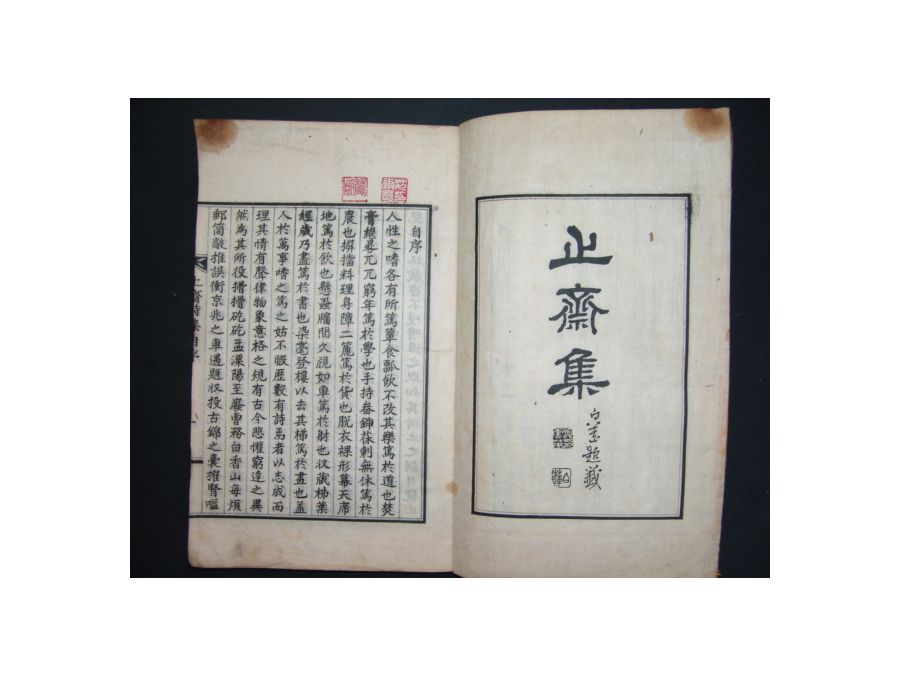 止齋集
題籤
自序
人性之嗜各有所篤簞食瓢飲不改其樂篤於道也焚
膏繼晷兀兀窮年篤於學也手持畚鍤荷刺無休篤於
農也摒擋料理身障二簏篤於貨也脫衣裸形幕天席
地篤於飲也懸蝨牖間久視如車篤於射也収藏柹葉
經歲乃盡篤於書也染毫登樓以去其梯篤於畫也盖
人於萬事嗜之篤之姑不暇歷數有詩焉者以志成而
理其情有聲律物象意格之規有古今悲懽窮達之異
然為其所役搰搰矻矻孟溧陽至廢曹務白香山每煩
郵筒敲推誤衝京兆之車遇題収投古錦之囊擢腎嘔
止齋詩集自序